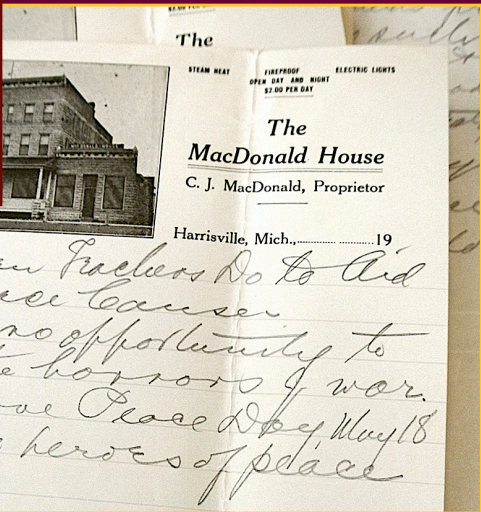 The
STEAM HEAT
FIREPROOF
ELECTRIC LIGHTS
OPEN DAY AND NIGHT
$2.00 PER DAY
The
MacDonald House
C. J. MacDonald, Proprietor
Harrisville, Mich.,........................19
Teachers Do to Aid
Cause
no opportunity to
horrors of war.
Peace Day, May 18
heroes of peace